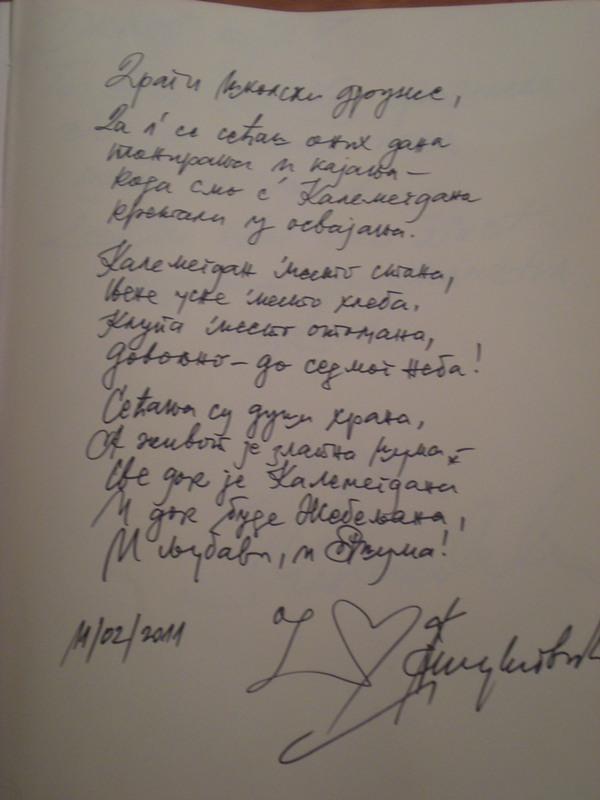 Драги школски друже,
Да л' се сећаш оних дана
и кајања –
када смо с' Калемегдана
кретали у освајања.
Калемегдан 'место стана,
њене усне 'место хлеба.
Клупа 'место отомана,
довољно – до седмог неба!
Сећања су души храна,
А живот је златна
Све док је Калемегдана
И док буде Жебељана,
И љубави, и
11/02/2011